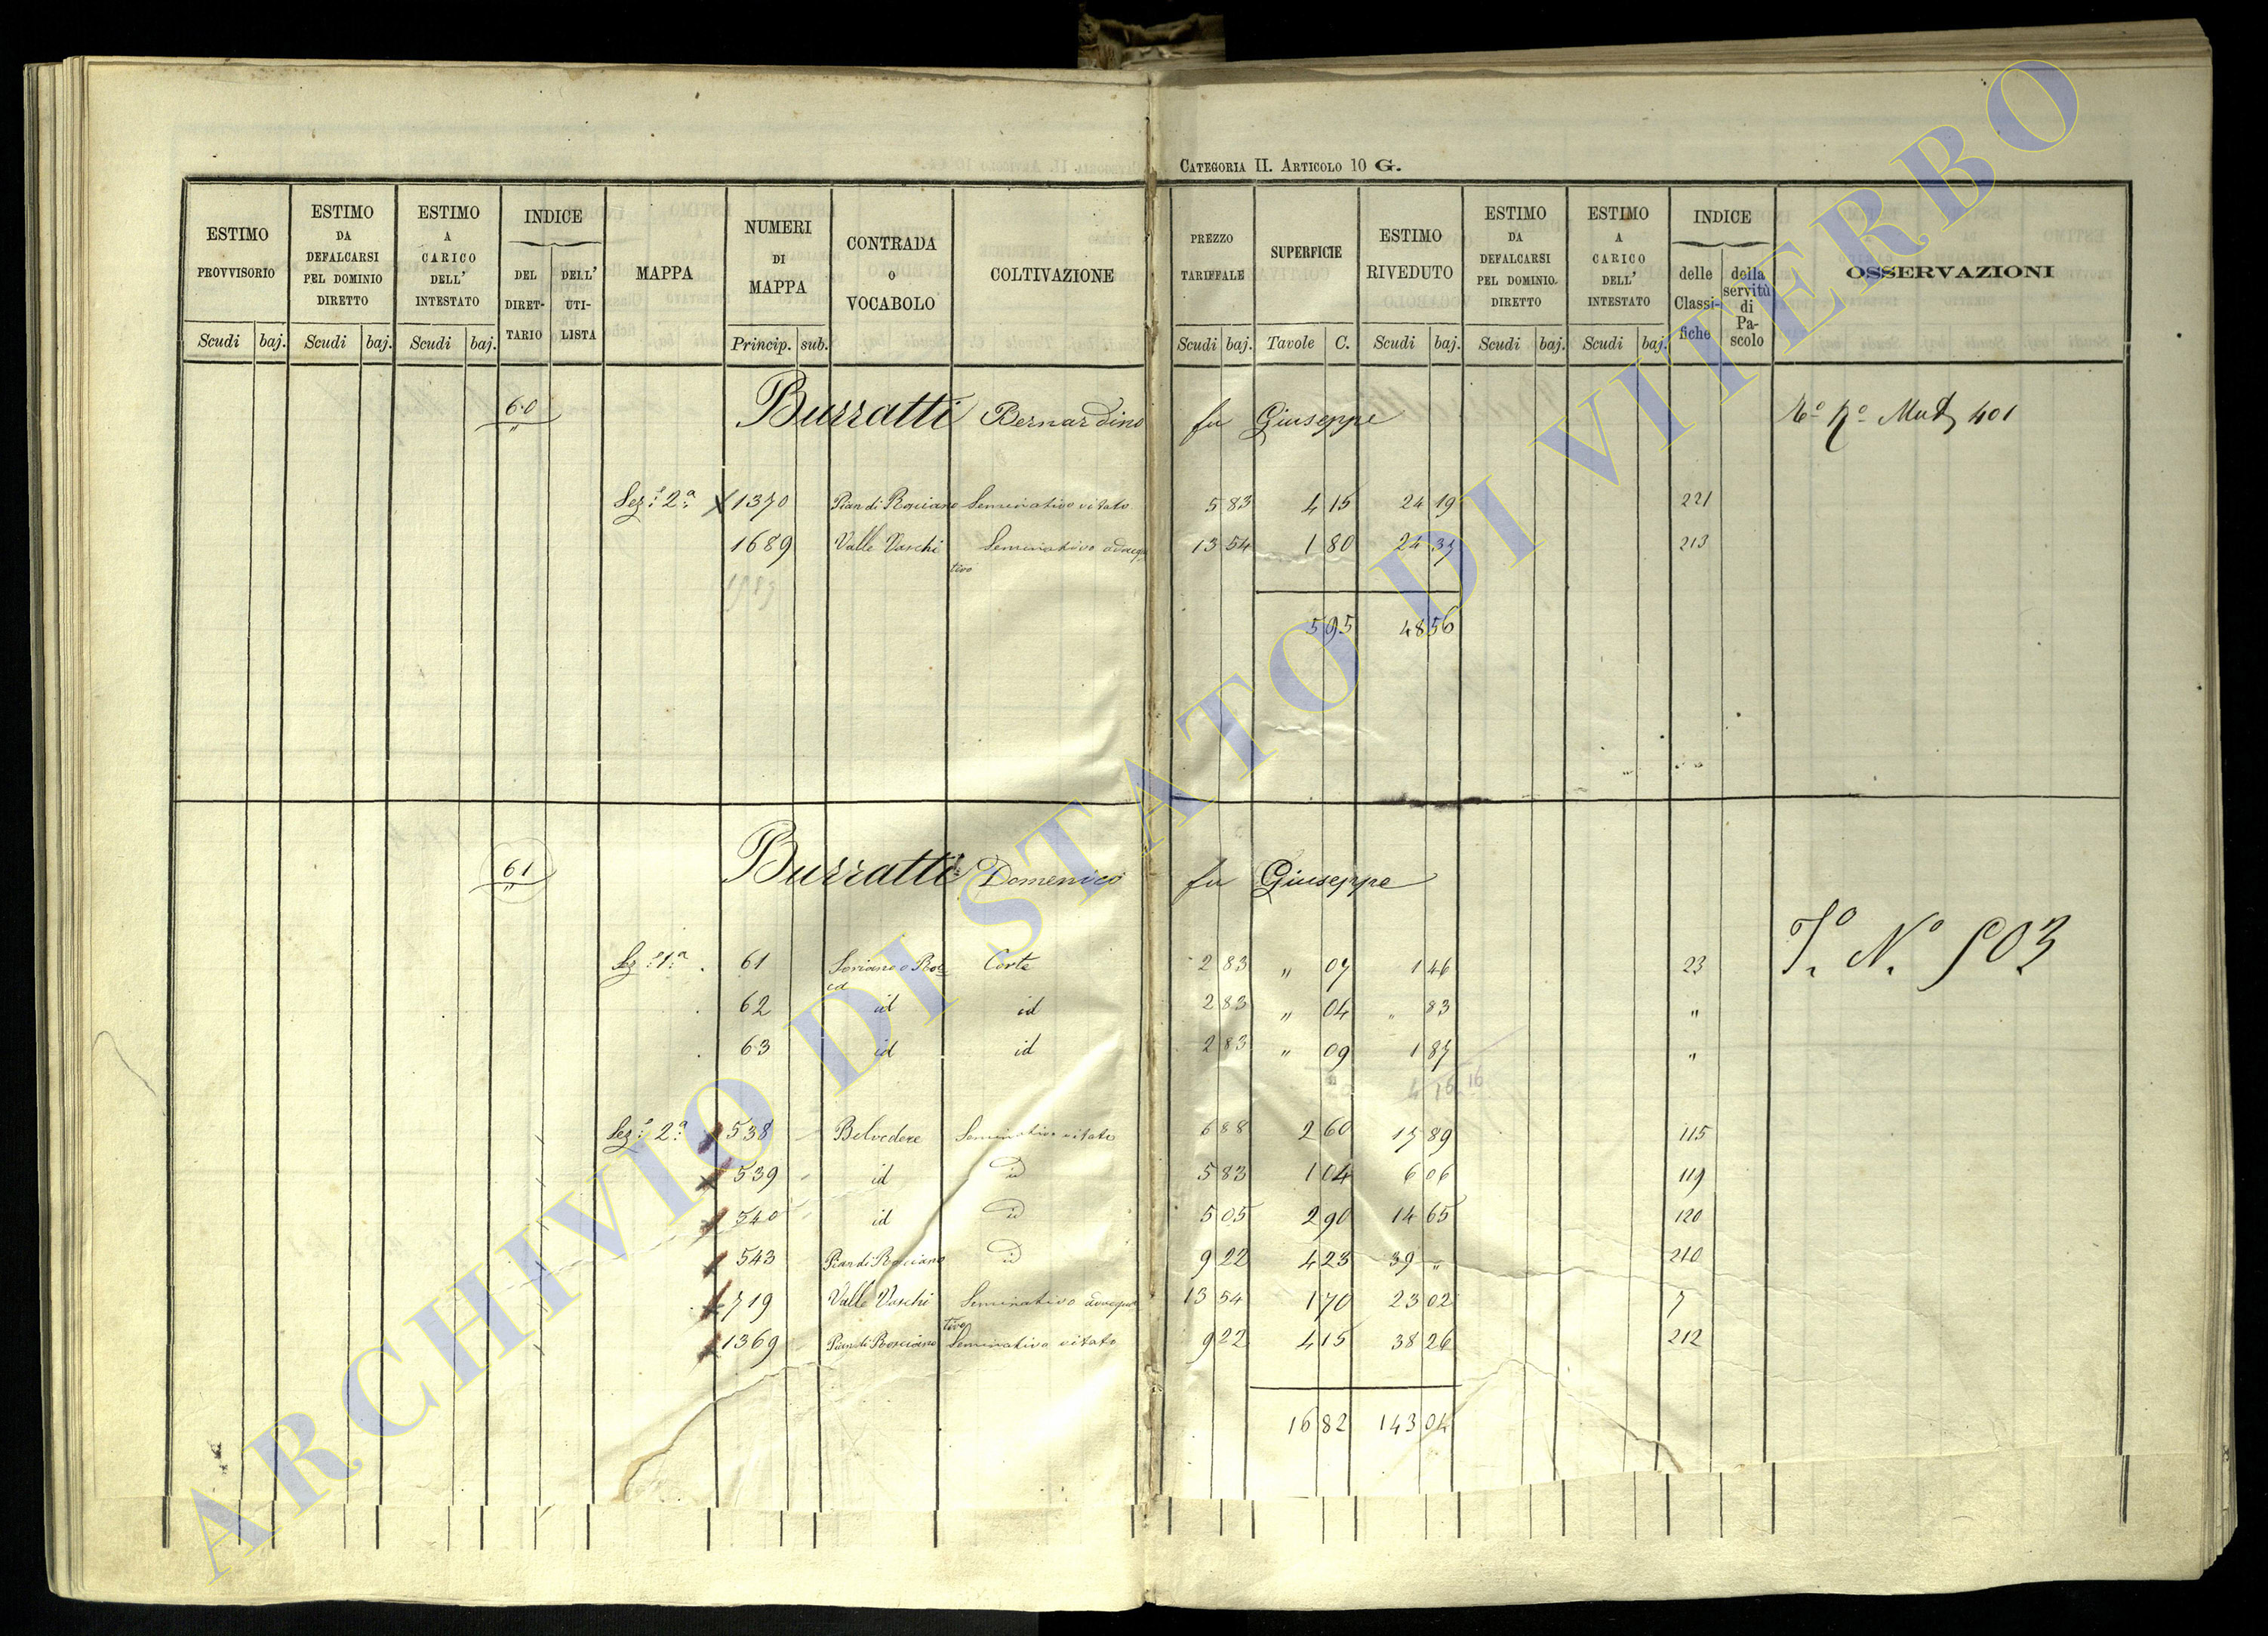 CATEGORIA II. ARTICOLO 10 G.
ESTIMO PROVVISORIO Scudi baj.
ESTIMO DA DEFALCARSI PEL DOMINIO DIRETTO Scudi baj.
ESTIMO A CARICO DELL' INTESTATO Scudi baj.
INDICE DEL DIRETTARIO DELL' UTILISTA
MAPPA
NUMERI DI MAPPA Princip. sub.
CONTRADA O VOCABOLO
COLTIVAZIONE
PREZZO TARIFFALE Scudi baj.
SUPERFICIE Tavole C.
ESTIMO RIVEDUTO Scudi baj.
ESTIMO DA DEFALCARSI PEL DOMINIO DIRETTO Scudi baj.
ESTIMO A CARICO DELL' INTESTATO Scudi baj.
INDICE delle Classifiche della servitù di Pascolo
OSSERVAZIONI
60 Burratti Bernardino fu Giuseppe 401
Sez:e 2:a 1370 Pian di Rosciano Seminativo vitato 5 83 4 15 24 19 221
1689 Valle Vaschi Seminativo adacquativo 13 54 1 80 24 37 213
5 95 48 56
61 Burratti Domenico fu Giuseppe
T.o N.o 503
Sez:e 1:a 61 Soriano o Rocca Corte 2 83 " 07 1 46 23
62 id id 2 83 " 04 " 83 "
63 id id 2 83 " 09 1 87 "
4 16 16
Sez:e 2:a 538 Belvedere Seminativo vitato 6 88 2 60 17 89 115
539 id id 5 83 1 04 6 06 119
540 id id 5 05 2 90 14 65 120
543 Pian di Rosciano id 9 22 4 23 39 " 210
719 Valle Vaschi Seminativo adacquativo 13 54 1 70 23 02 7
1369 Pian di Rosciano Seminativo vitato 9 22 4 15 38 26 212
16 82 143 04
ARCHIVIO DI STATO DI VITERBO